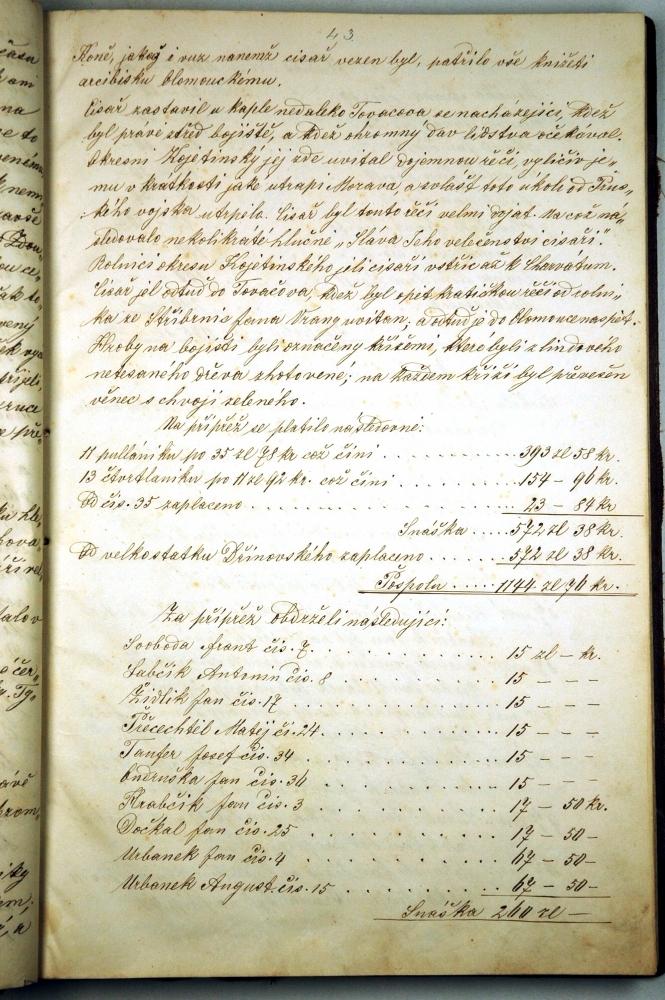 43.
Koně, jakož i vuz nanemž cisař vezen byl, patřilo vše knížeti
arcibisku Olomouckému.
Cisař zastavil u kaple nedaleko Tovačova se nacházející, kdež
byl pravě střed bojiště, a kdež ohromny dav lidstva očekával.
Okresni Kojetinský jej zde uvítal dojemnou řečí, vylíčiv je„
mu v kratkosti jake utrapi Morava, a zvlašť toto úkolí od Prus„
kého vojska utrpilo. Cisař byl touto řečí velmi dojat. Na což ná„
sledovalo nekolikráté hlučné „Sláva Jeho velečenstvi cisaři".
Rolnici okresu Kojetinského, jeli cisaři vstříc až k Charvátum.
Cisař jel odtud do Tovačova, kdež byl opět kratičkou řečí od rolni„
ka ze Střibrnic Jana Vrany uvitan, a odtud je do Olomouce naspět.
Hroby na bojišti byli označeny křížemi, ktere byli z lindového
netesaného dřeva zhotovené; na každem kříži byl převezen
věnec s chvoji zeleného.
Na přípřež se platilo následovně:
11 pullániku po 35 zl 78 kr což činí . . . . . . . . . 393 zl 58 kr.
13 čtvrtlaniku po 11 zl 92 kr. což čini . . . . . . . . . 154 – 96 kr.
Od čis. 35 zaplaceno . . . . . . . . . 23 – 84 kr
Snáška . . . . . 572 zl 38 kr.
Od velkostatku Dřínovského zaplaceno . . . . . . 572 zl 38 kr.
Pospolu . . . . . 1144 zl 76 kr.
Za přípřež obdrželi následující:
Svoboda Frant čis. 7. . . . . . . . . 15 zl – kr.
Sabčik Antonin čis. 8 . . . . . . . . 15 – – –
Židlik Jan čis. 17 . . . . . . . . 15 – – –
Přecechtěl Matěj či. 24. . . . . . . . 15 – – –
Taufer Josef čis. 34 . . . . . . . . 15 – – –
Ondruška Jan čis. 36 . . . . . . . . 15 – – –
Hrabčik Jan čis. 3 . . . . . . . . 17 – 50 kr.
Dočkal Jan čis. 25 . . . . . . . . 17 – 50 –
Urbanek Jan čis. 4 . . . . . . . . 67 – 50 –
Urbanek August. čis. 15 . . . . . . . . 67 – 50 –
Snáška 260 zl –